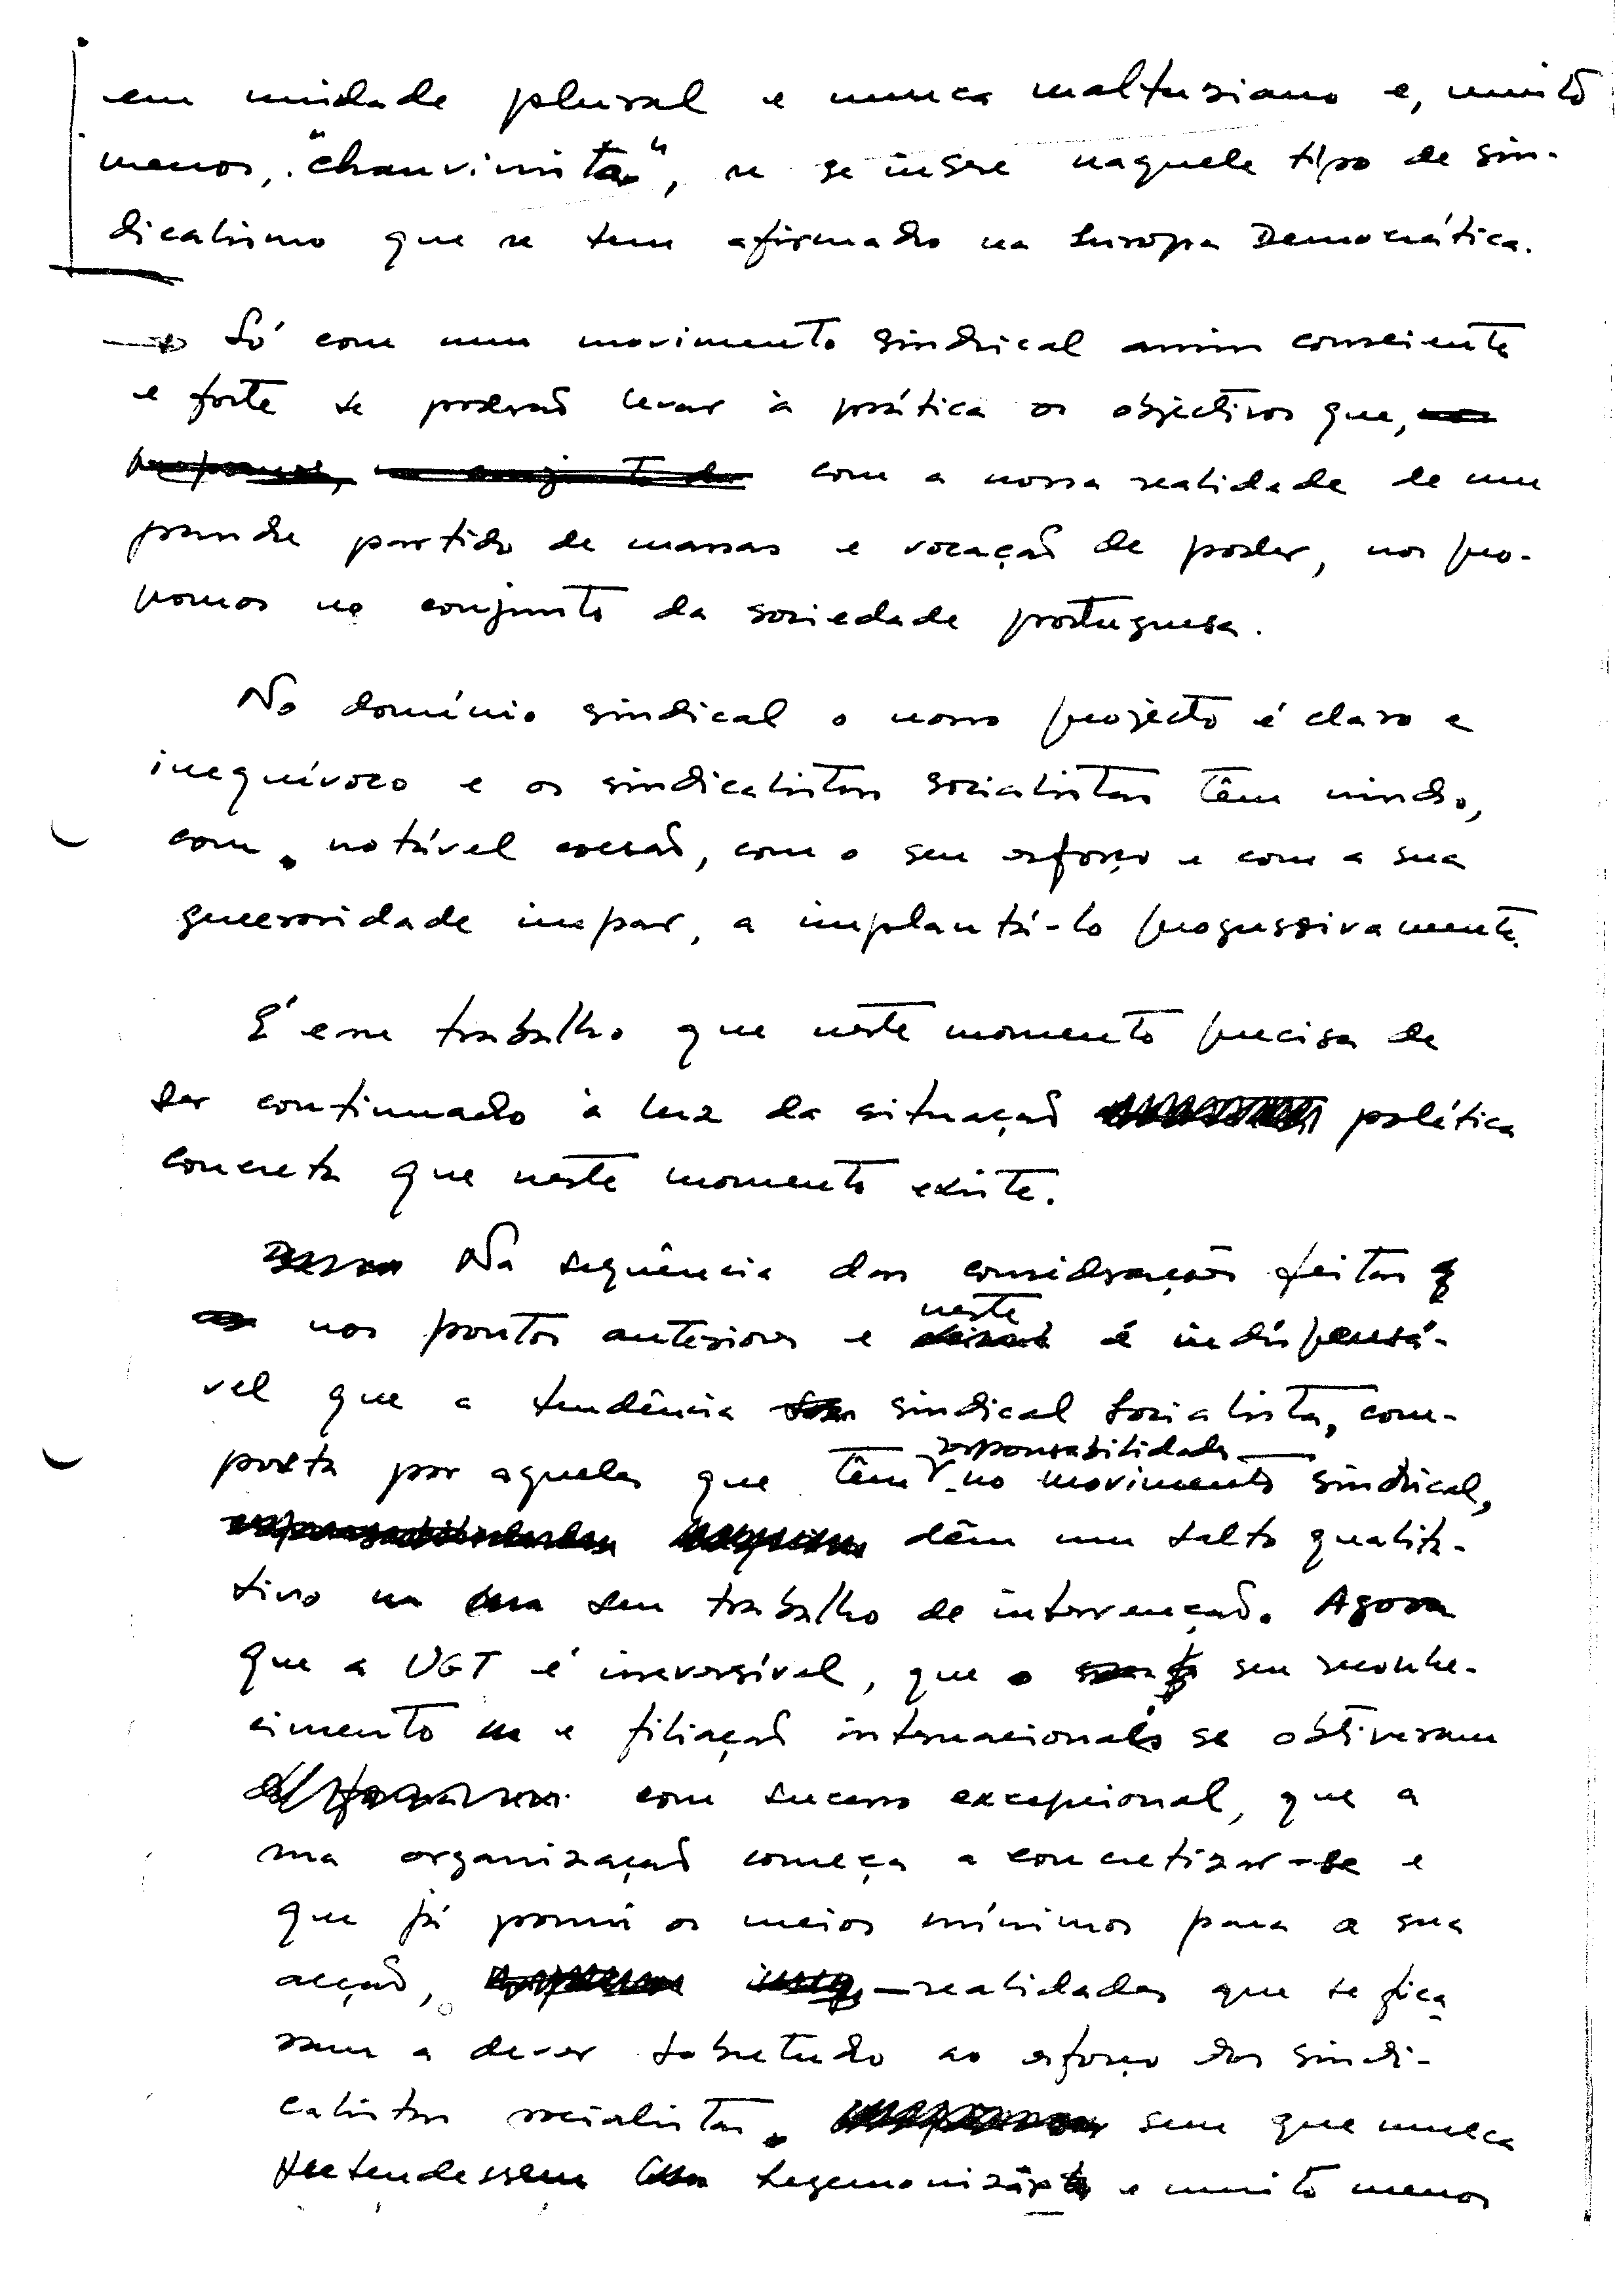 em unidade plural e nunca maltusiano e, muito
menos, "chauvinista", se insere naquele tipo de sin-
dicalismo que se tem afirmado na Europa Democrática.
Só com um movimento sindical assim consciente
e forte se poderão levar à prática os objectivos que,
com a nossa realidade de um
grande partido de massas e vocação de poder, nos pro-
pomos no conjunto da sociedade portuguesa.
No domínio sindical o nosso projecto é claro e
inequívoco e os sindicalistas socialistas têm vindo,
com notável coesão, com o seu esforço e com a sua
generosidade impar, a implantá-lo progressivamente.
É esse trabalho que neste momento precisa de
ser continuado à luz da situação política
concreta que neste momento existe.
Na sequência das considerações feitas
nos pontos anteriores e neste é indispensá-
vel que a tendência sindical socialista, com-
posta por aqueles que têm responsabilidades no movimento sindical,
dêm um salto qualita-
tivo no seu trabalho de intervenção. Agora
que a UGT é irreversível, que o seu reconhe-
cimento e filiação internacionais se obtiveram
com sucesso excepcional, que a
sua organização começa a concretizar-se e
que já possui os meios mínimos para a sua
acção, - realidades que se fica
ram a dever sobretudo ao esforço dos sindi-
calistas socialistas. sem que nunca
pretendessem hegemonizá-la e muito menos